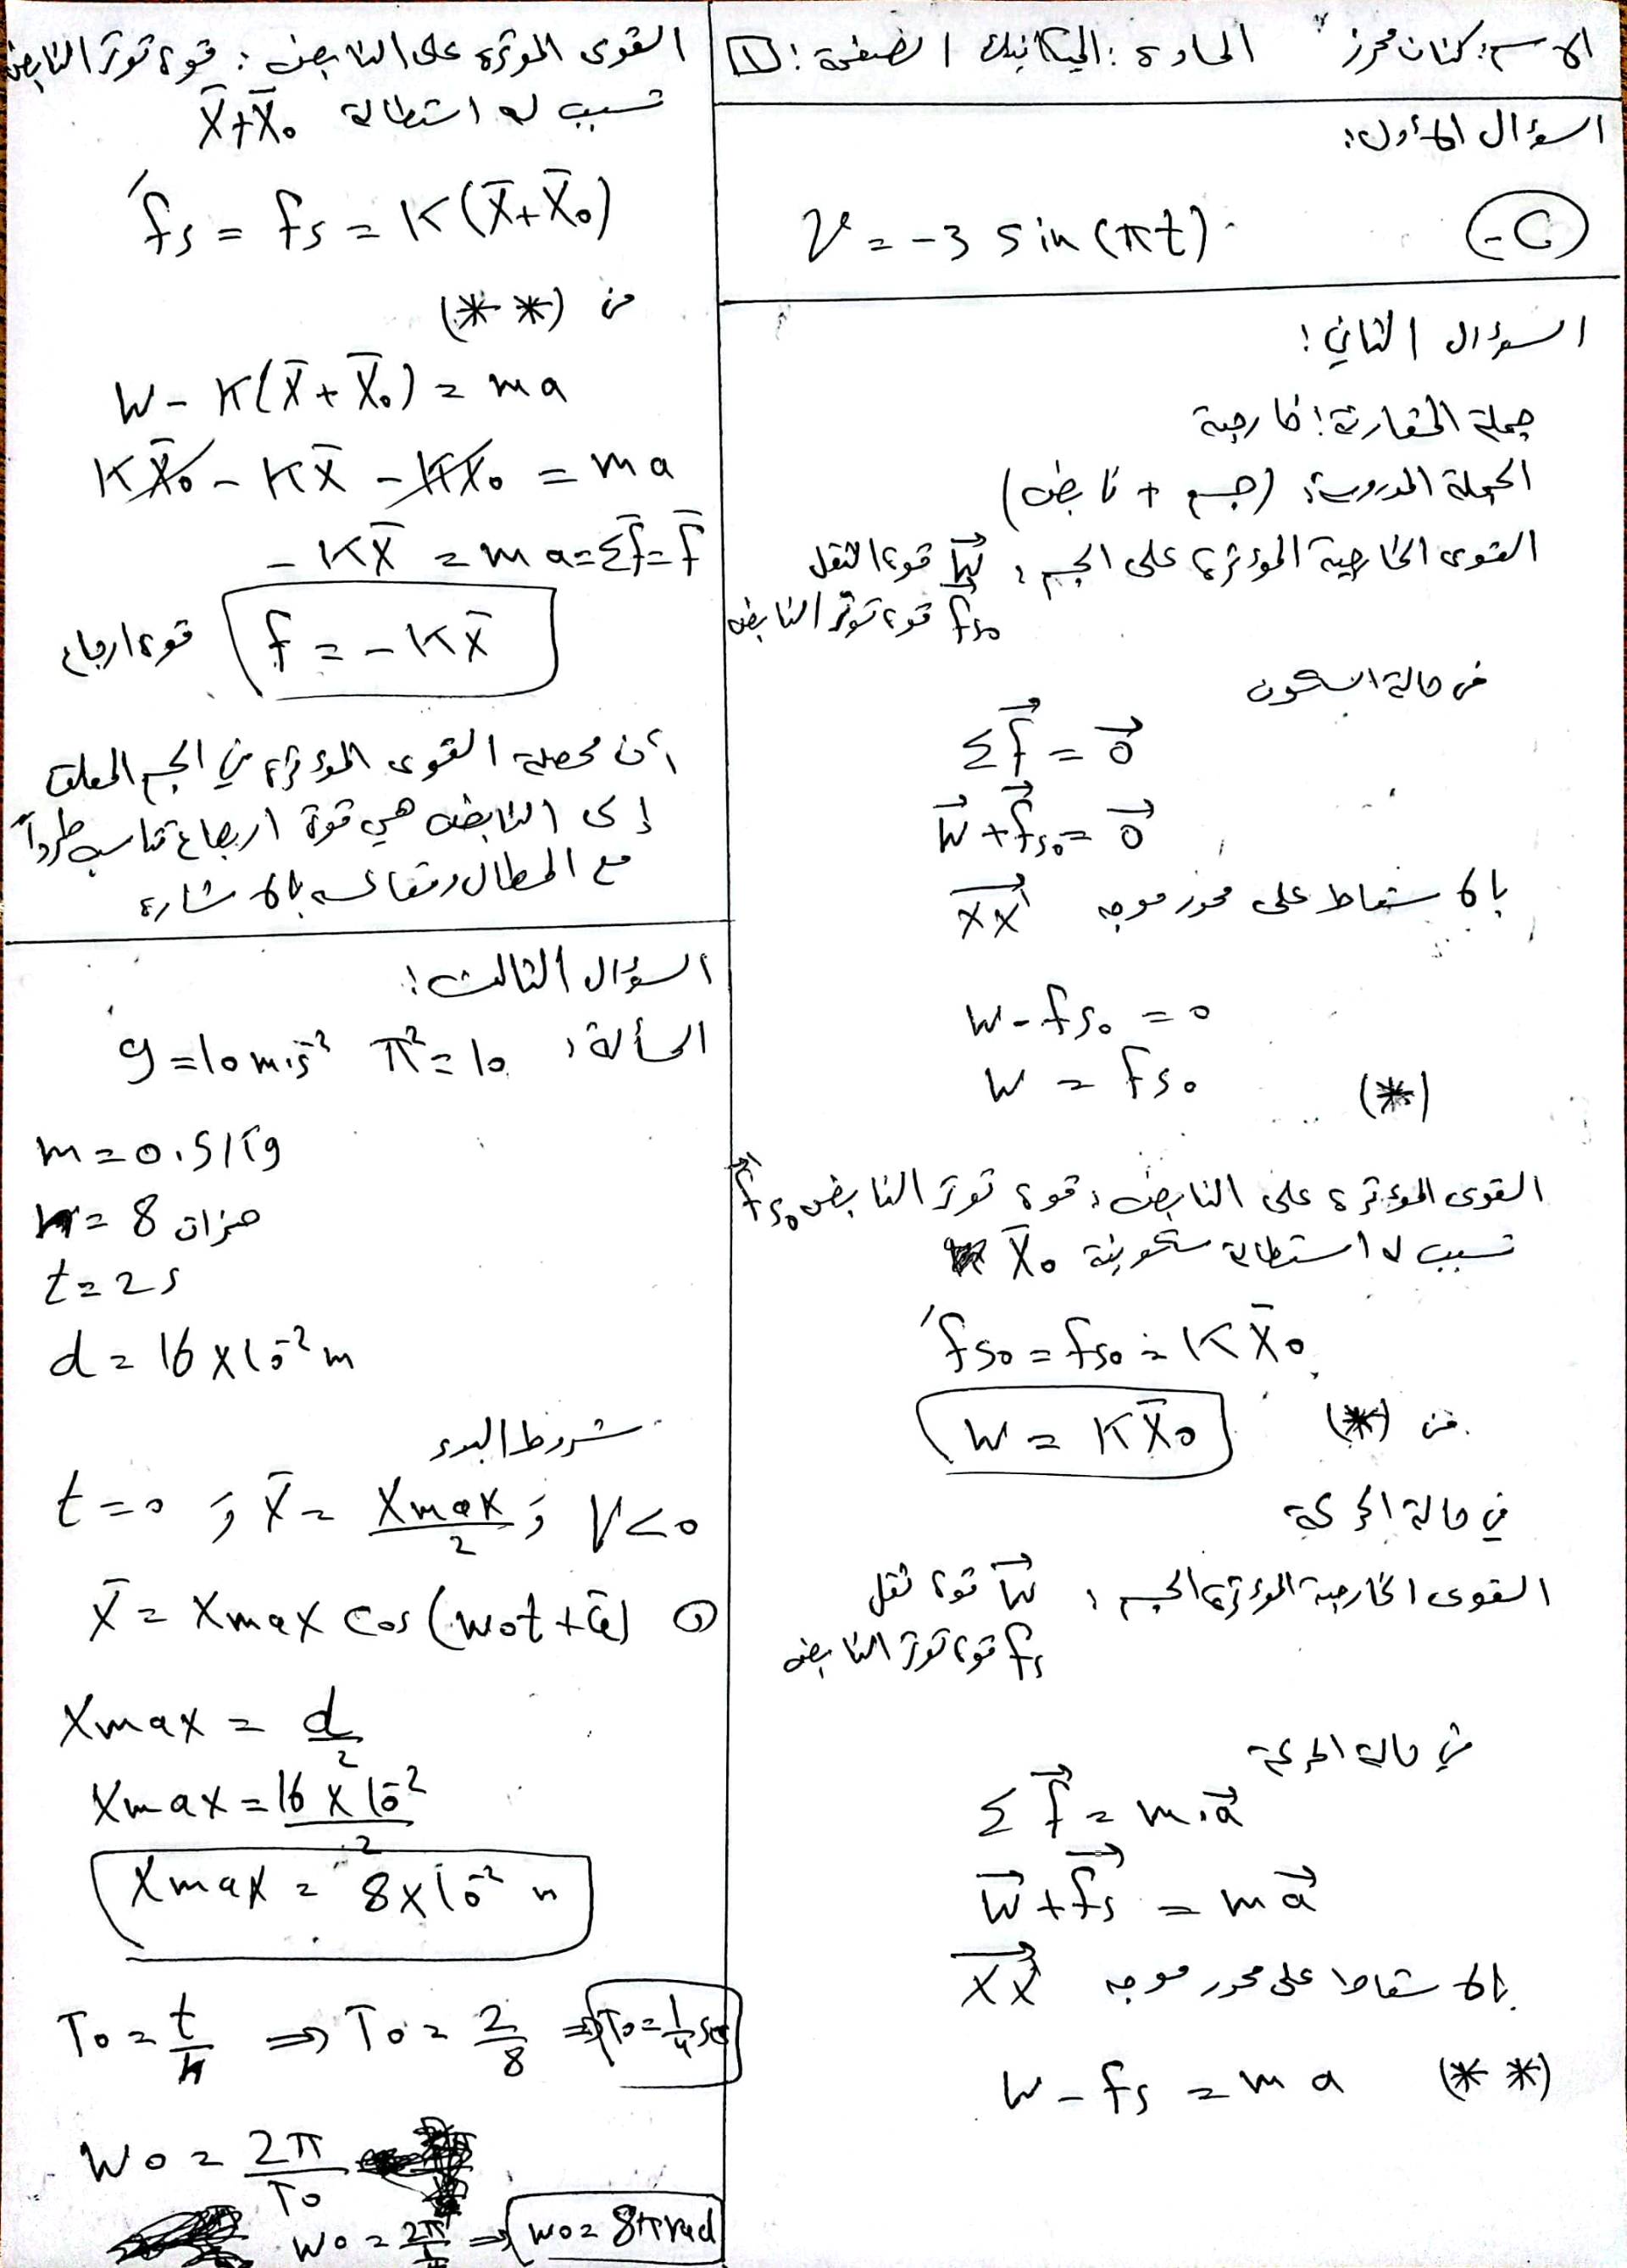 الاسم: كنان محرز المادة: الميكانيك الصفحة: 1
السؤال الأول:
C- V = -3 sin(πt)
السؤال الثاني:
جملة المقارنة: خارجية
الجملة المدروسة: (جسم + نابض)
القوى الخارجية المؤثرة على الجسم: W قوة الثقل
fs₀ قوة توتر النابض
في حالة السكون
Σf = 0
W + fs₀ = 0
بالاسقاط على محور موجه xx'
W - fs₀ = 0
W = fs₀ (*)
القوى المؤثرة على النابض: قوة توتر النابض f's₀
تسبب له استطالة سكونية X̄₀
f's₀ = fs₀ = KX̄₀
من (*) W = KX̄₀
في حالة الحركة
القوى الخارجية المؤثرة الجسم: W قوة ثقل
fs قوة توتر النابض
في حالة الحركة
Σf = m.a
W + fs = ma
بالاسقاط على محور موجه xx'
W - fs = ma (**)
القوى الموثرة على النابض: قوة توتر النابض
تسبب له استطالة X̄+X̄₀
f's = fs = K(X̄+X̄₀)
من (**)
W - K(X̄+X̄₀) = ma
KX̄₀ - KX̄ - KX₀ = ma
-KX̄ = ma = Σf = f
f = -KX̄ قوة ارجاع
أن محصلة القوى المؤثرة في الجسم المعلق
إلى النابض هي قوة ارجاع تناسب طرداً
مع المطال وتعاكسه بالاشارة
السؤال الثالث:
المسألة: π² = 10 g = 10 m.s⁻²
m = 0.5 kg
n = 8 هزات
t = 2s
d = 16 x 10⁻² m
شروط البدء
t = 0 ; X̄ = Xmax/2 ; V < 0
X̄ = Xmax cos(ω₀t + φ̄) ①
Xmax = d/2
Xmax = 16 x 10⁻²/2
Xmax = 8 x 10⁻² m
T₀ = t/n ⇒ T₀ = 2/8 ⇒ T₀ = 1/4 sec
ω₀ = 2π/T₀
⇒ ω₀ = 8π rad